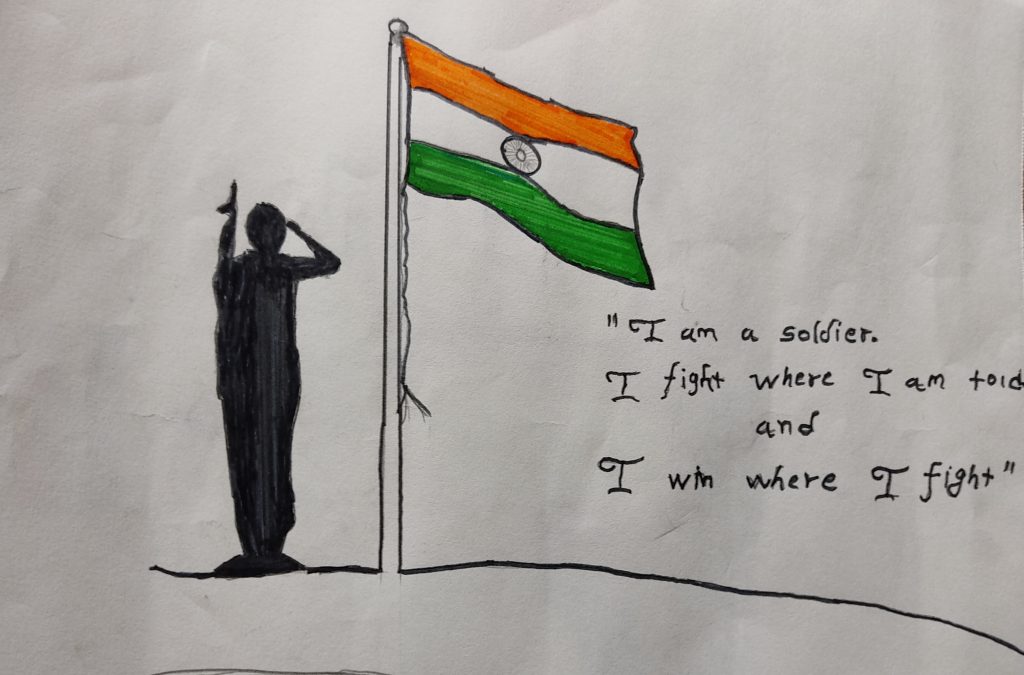 "I am a soldier.
I fight where I am told
and
I win where I fight"